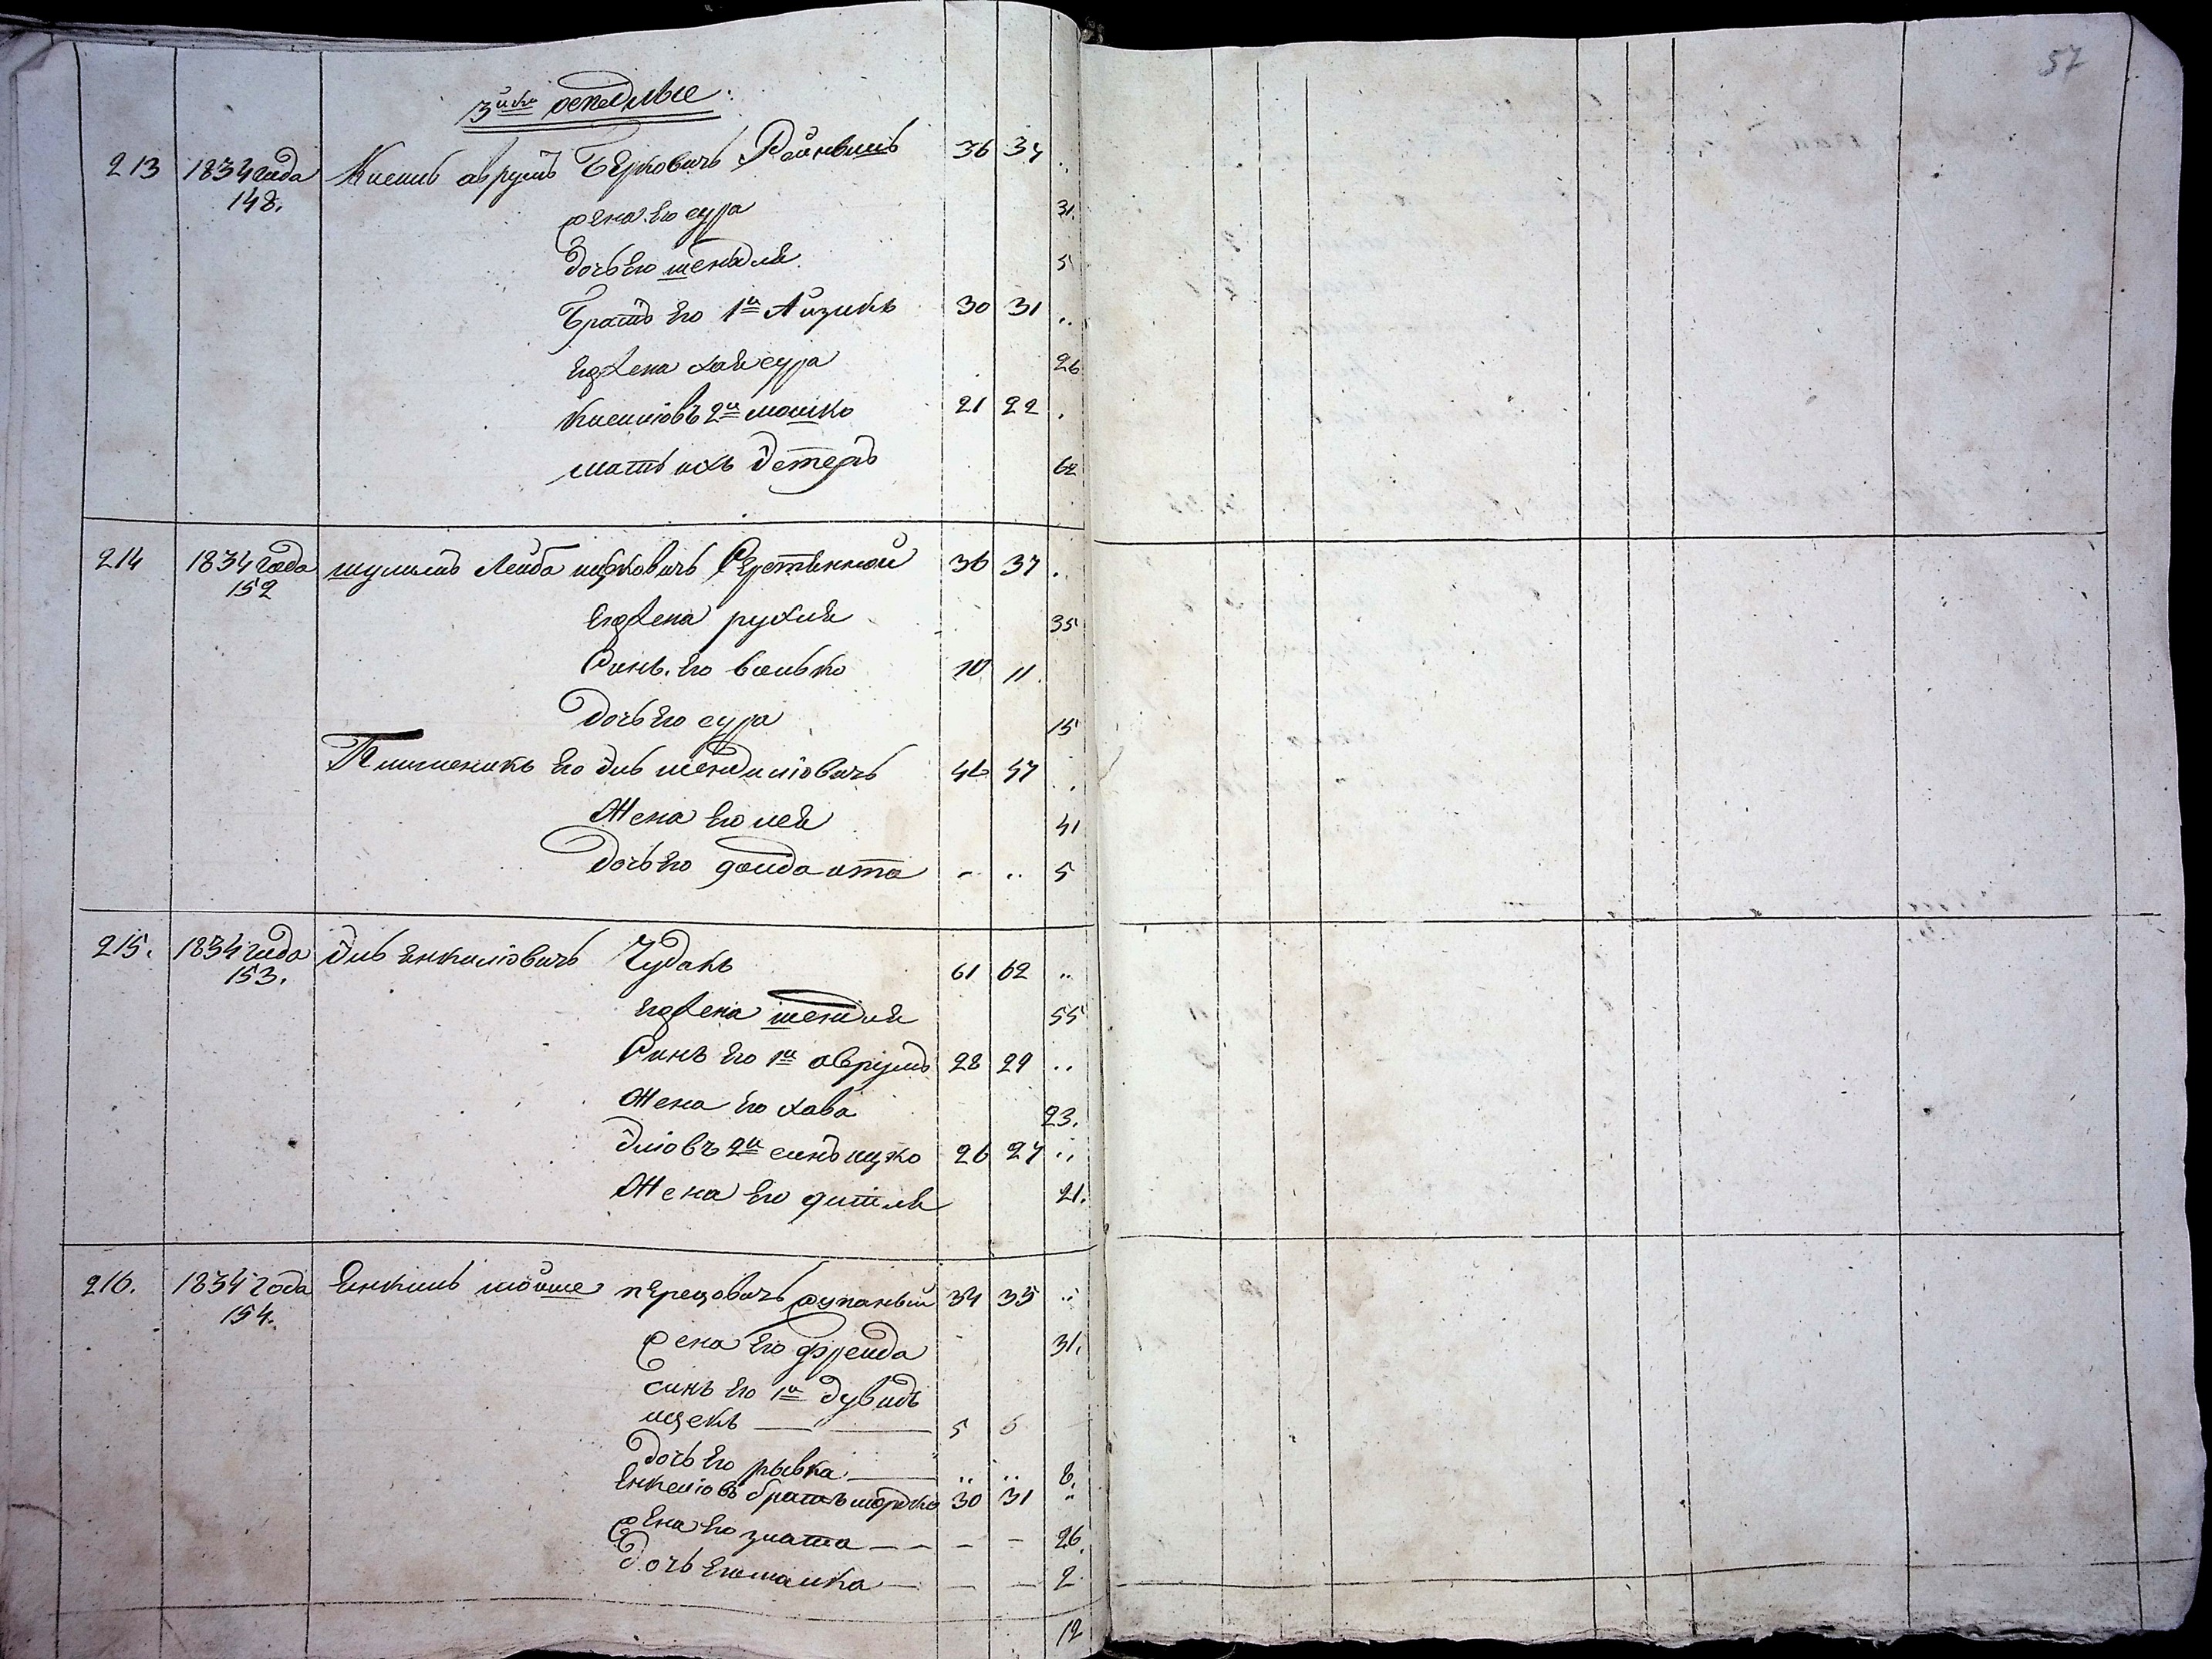 57
3й оседлые
213 1834 года Кисиль аврумъ Берковичъ Рейнвиль 36 37
148. жена его сура 31.
Дочь его шейндля 5
Братъ его 1й Айзикъ 30 31
Его жена хая сура 26
Кисилiовъ 2й мошко 21 22
мать ихъ 62
214 1834 года шулимъ Лейба ицковичъ 36 37
152
Его жена рухля 35
Синъ его волько 10 11
Дочь его сура 15
Племеникъ его Эль мендилiовичъ 46 47
Жена его лея 41
Дочь его ита 5
215. 1834 года Эль Енкилiовичъ Чудакъ 61 62
153.
Его жена шендля 55
Синъ его 1й аврумъ 28 29
Жена его хава 23.
Элiовъ 2й синъ ицко 26 27
Жена его гитля 21.
216. 1834 года Енкиль мойше перецовичъ 34 35
154.
жена его фрейда 31.
синъ его 1й дувидъ
ицекъ 5 6
Дочь его рывка 8.
Енкелiовъ братъ мордко 30 31
жена его злата 26.
дочь его малка 2
12